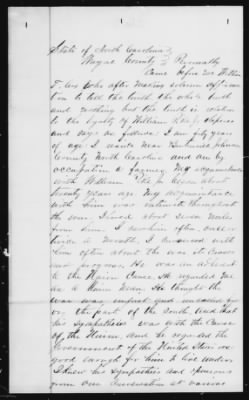 State of North Carolina
Wayne County } Personally
Came before me William
T. who after making solemn affirmation
to tell the truth the whole truth
and nothing but the truth in relation
to the loyalty of William
and says as follows: I am fifty years
of age. I reside Near Johnson
County North Carolina and am by
occupation a farmer. My acquaintance
with William began about
twenty years ago. My acquaintance
with him was intimate throughout
the war. I lived about seven miles
from him. I saw him often once or
twice a Month. I conversed with
him often about the war its Causes
and progress. He was an adherent
to the Union Cause He regarded me
as a Union Man. He thought the
war was unjust and uncalled for
on the part of the South, and that
his Sympathies was with the Cause
of the Union, and he regarded the
Government of the United States was
good enough for him to live under.
I knew his Sympathies and opinions
from our Conversation at various